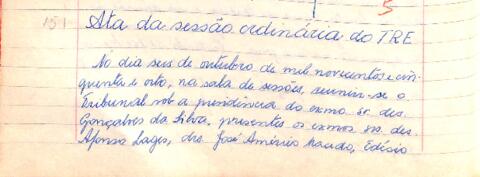 151 Ata da sessão ordinária do TRE
No dia seis de outubro de mil novecentos e cin-
quenta e oito, na sala de sessões, reuniu-se o
Tribunal sob a presidência do exmo sr. des.
Gonçalves da Silva. presentes os exmos srs. des.
Afonso Lages, drs. José Américo Macedo, Edésio